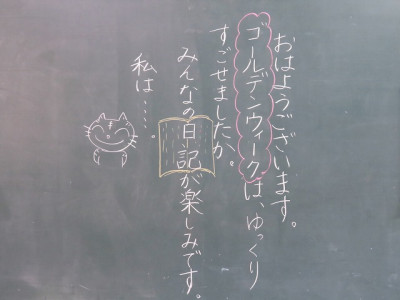 おはようございます。
ゴールデンウィークは、ゆっくり
すごせましたか。
みんなの日記が楽しみです。
私は……。